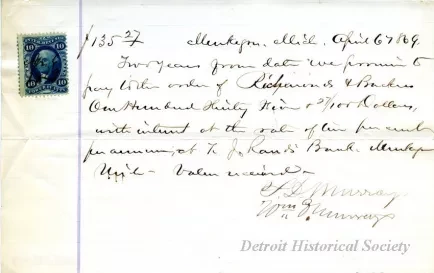 10 10
$135 27 Muskegon, Mich. April 6 1869.
Two years from date we promise to
pay to the order of Richmonds & Backus
One Hundred Thirty Five & 27/100 Dollars,
with interest at the rate of ten per cent
per annum, at T. J. Rand's Bank Muskegon
Mich - Value received -
Murray
Wm Murray
Detroit Historical Society